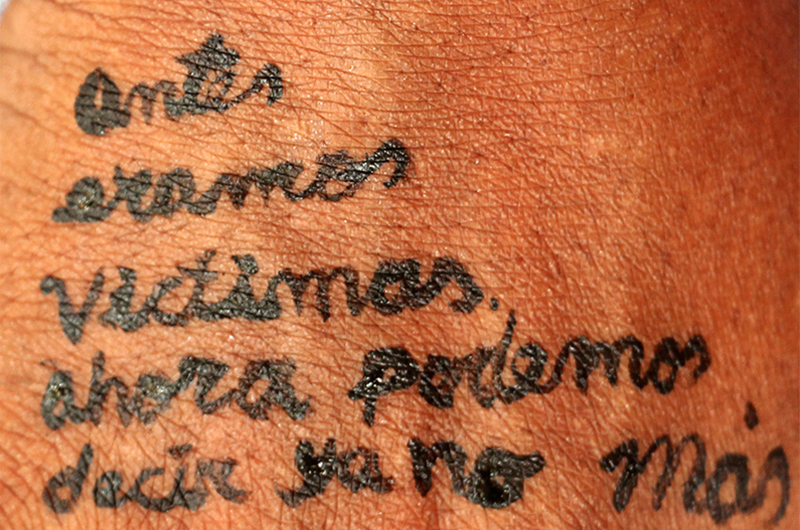 antes
eramos
victimas.
ahora podemos
decir ya no más